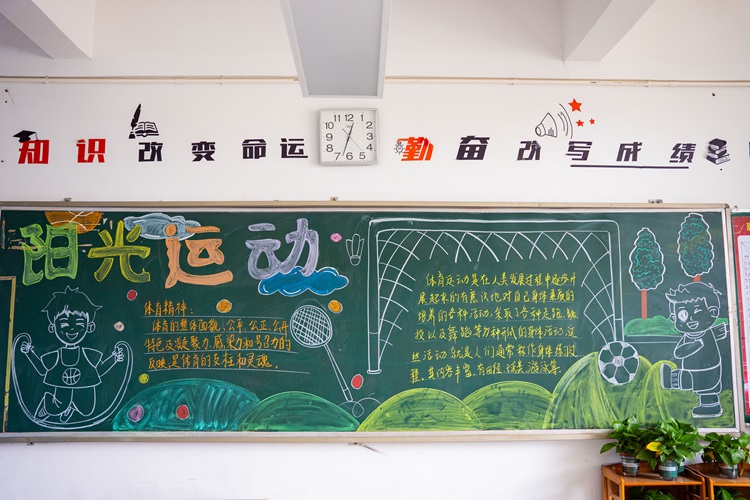 知识改变命运
12
1
2
3
4
5
6
7
8
9
10
11
勤奋改写成绩
阳光运动
体育精神:
体育的整体面貌,公平,公正,公开
特色及凝聚力,感染力和号召力的
反映,是体育的支柱和灵魂.
体育运动是在人类发展过程中逐步开
展起来的有意识地对自己身体素质的
培养的各种活动.采取了各种走,跑,跳,
投以及舞蹈等多种形式的身体活动,这
些活动就是人们通常称作身体练习过
程.其内容丰富,有田径,球类,游泳等.